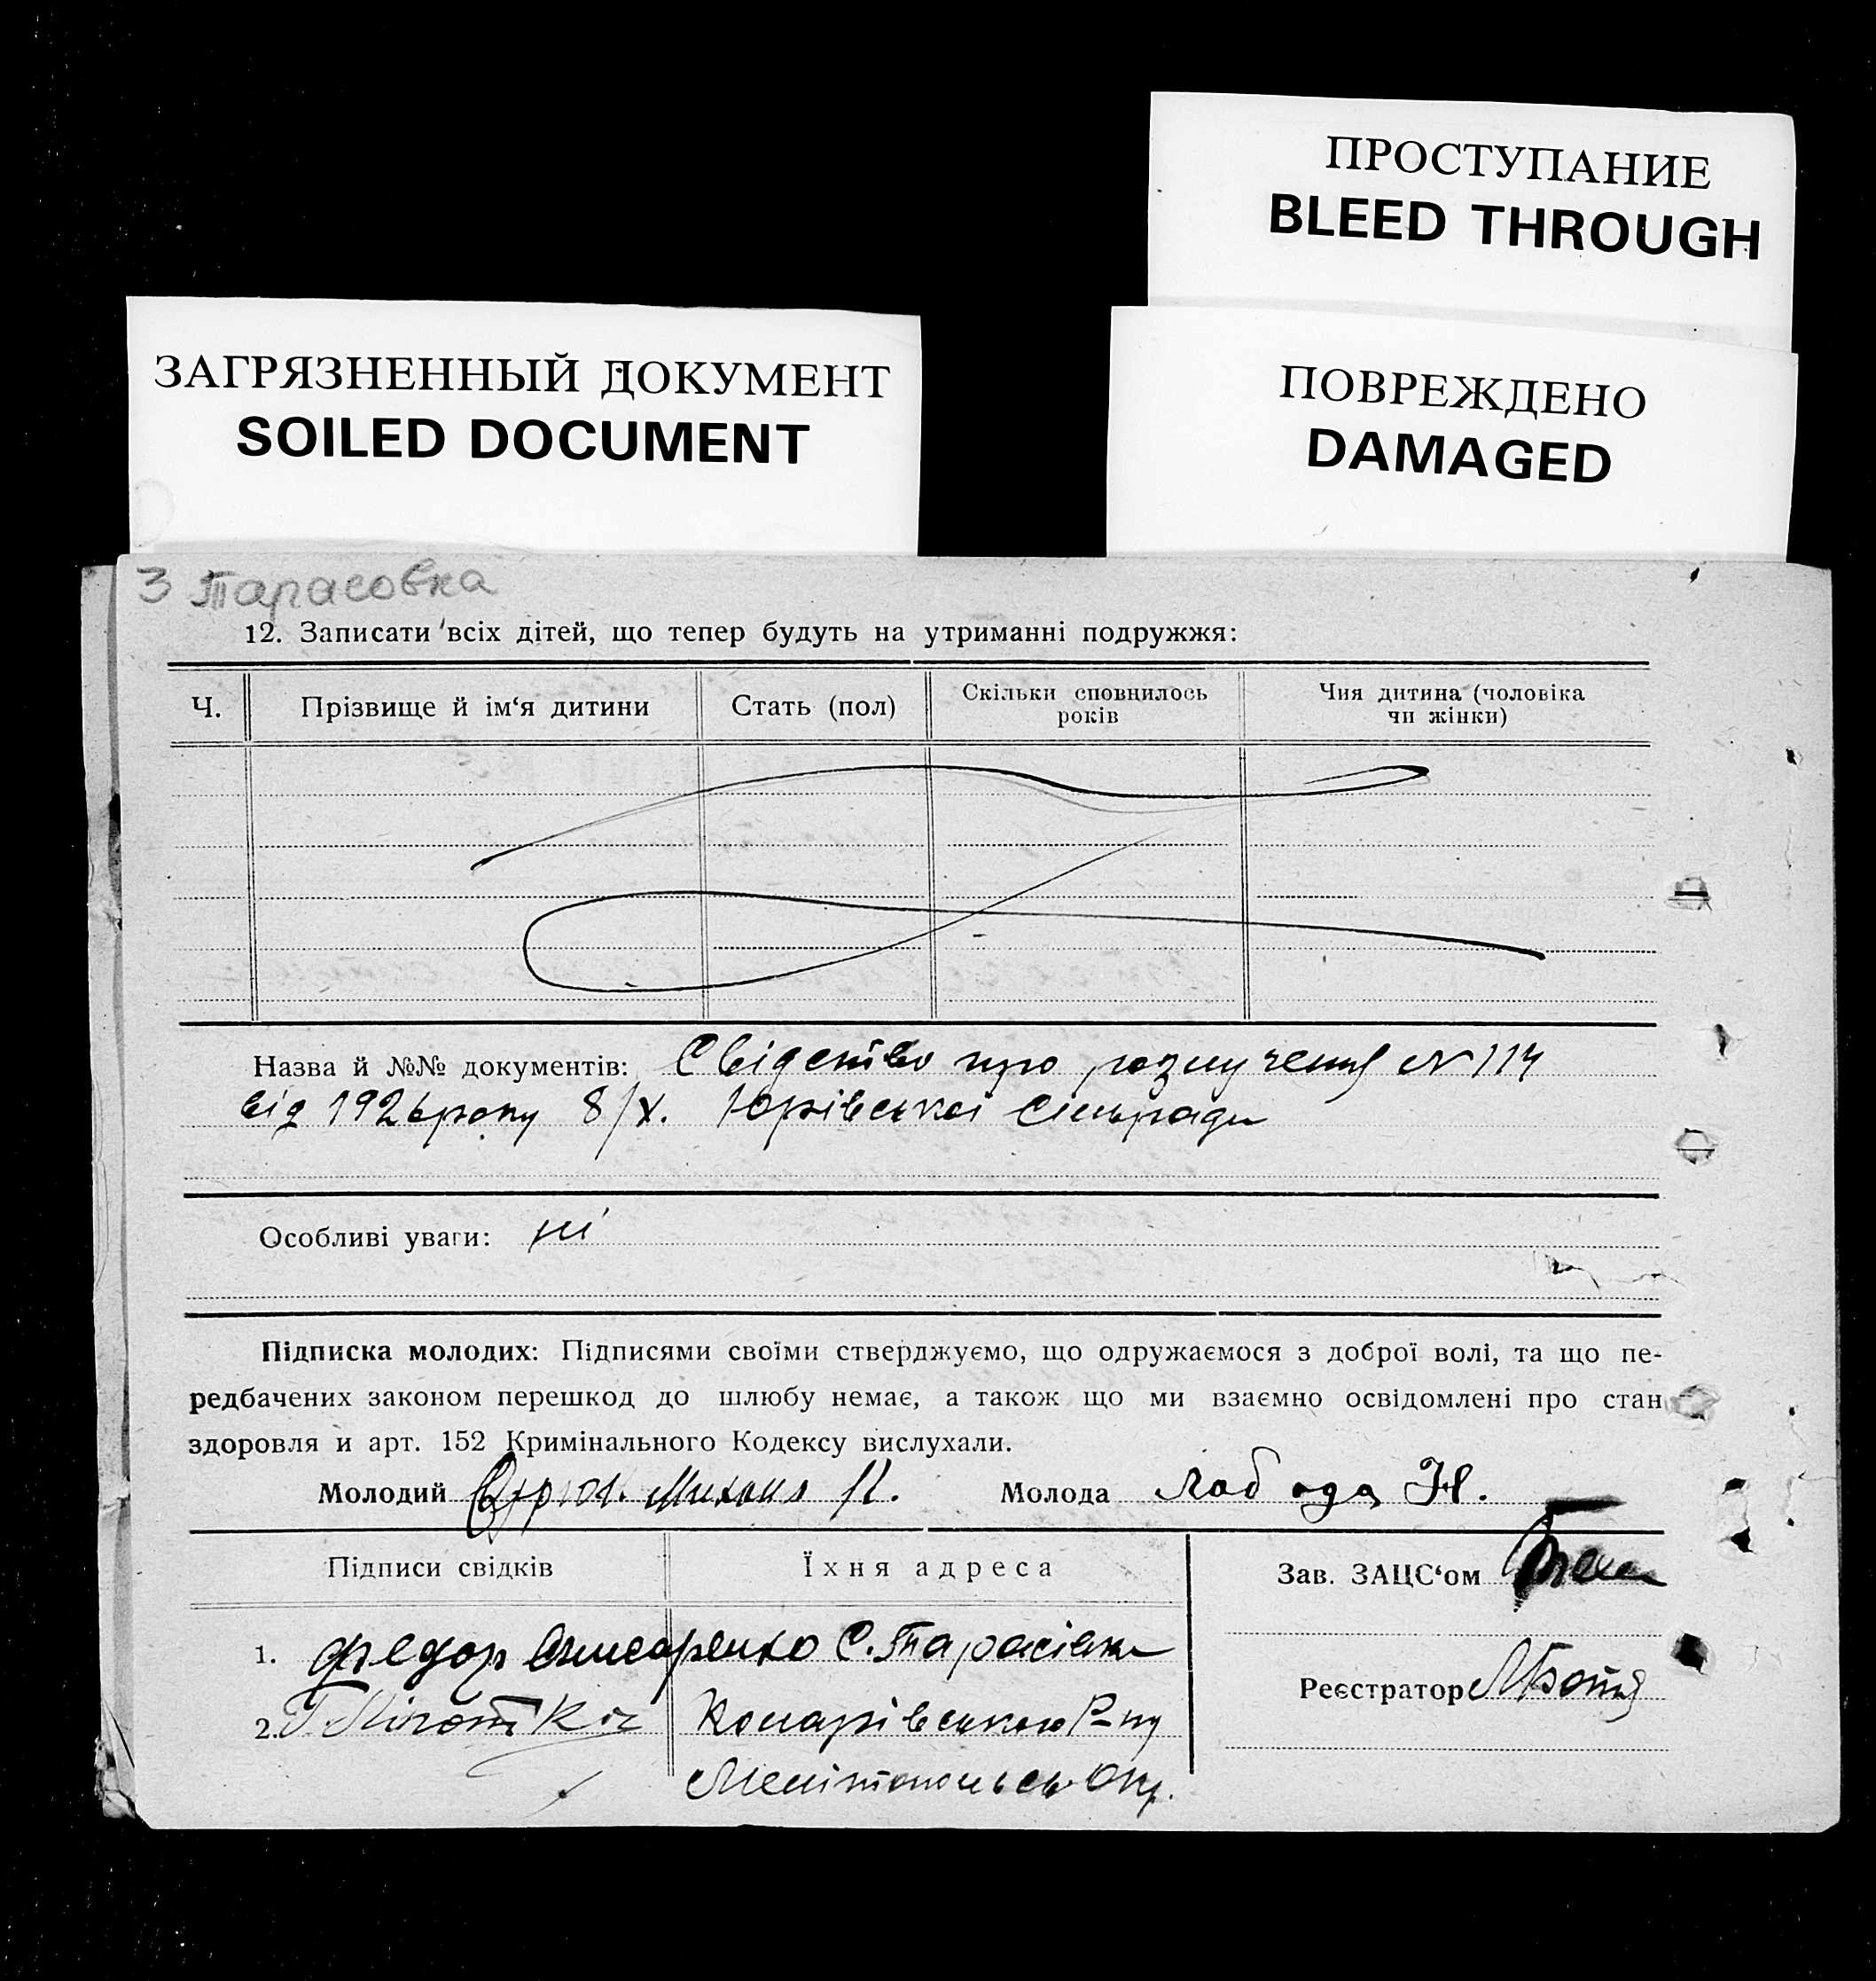 ПРОСТУПАНИЕ
BLEED THROUGH
ЗАГРЯЗНЕННЫЙ ДОКУМЕНТ
SOILED DOCUMENT
ПОВРЕЖДЕНО
DAMAGED
З Тарасовка
12. Записати всіх дітей, що тепер будуть на утриманні подружжя:
Ч. Прізвище й ім‘я дитини Стать (пол) Скільки сповнилось років Чия дитина (чоловіка чи жінки)
Назва й №№ документів: Свідетво про розлучення № 114
від 1926 року 8/X. Юрівської Сільради
Особливі уваги: ні
Підписка молодих: Підписями своїми стверджуємо, що одружаємося з доброї волі, та що пе-
редбачених законом перешкод до шлюбу немає, а також що ми взаємно освідомлені про стан
здоровля и арт. 152 Кримінального Кодексу вислухали.
Молодий Михаил Молода Лобода Н.
Підписи свідків Їхня адреса Зав. ЗАЦС‘ом
1. Федор С. Тарасівка
Реєстратор
2. Комарівського Р-ну
Мелітопольсь Окр.